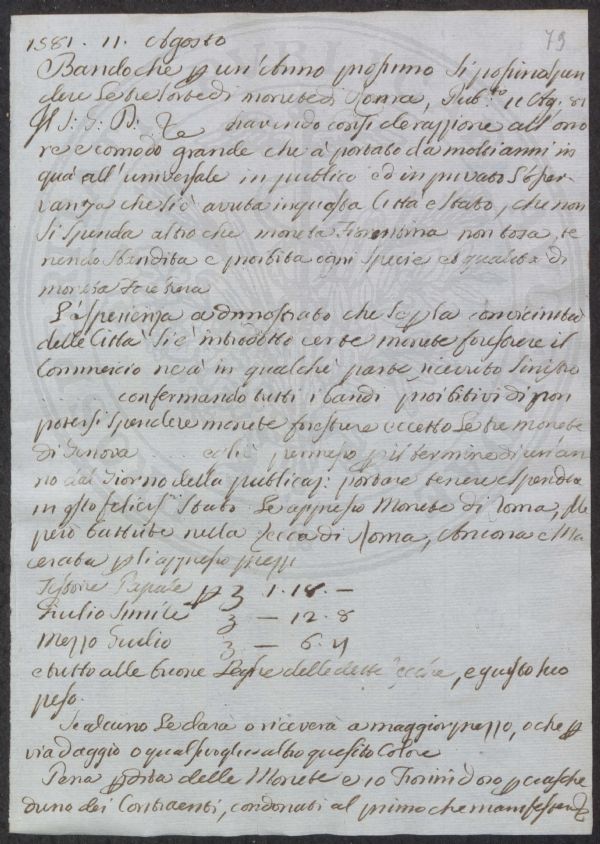 79
1581. 11. Agosto
Bando che p un'Anno prossimo si possino spen
dere Le tre sorte di monete di Roma, Pub.to 11 Ag. 81
Il S: G: D: havendo consideraz̃ione all'ono
re e comodo grande che à portato da molti anni in
quà all'universale in publico ed in privato L'osser
vanza che si è avuta in questa Città e Stato, che non
si spenda altro che moneta Fiorentina non tosa, te
nendo sbandita e proibita ogni specie e qualità di
moneta Forestiera
L'esperienza à dimostrato che se p la convicinità
delle Città si è introdotto certe monete forestiere il
Commercio ne à in qualche parte ricevuto sinistro
confermando tutti i bandi proibitivi di non
potersi spendere monete forestiere eccetto Le tre monete
di Genova permesso p il termine di un'an
no dal Giorno della publicaz: portare tenere e spendere
in qsto felicis.o Stato Le appresso Monete di Roma,
però battute nella Zecca di Roma, Ancona e Ma
cerata p li appresso prezzi
Testone Papale p 1. 18. —
Giulio Simile — 12. 8
Mezzo Giulio — 6. 4
e tutto alle buone Leghe delle dette Zecche, e giusto suo
peso.
Se alcuno Le darà o riceverà a maggior prezzo, o che p
via d'aggio o qual si voglia altro quesito Colore
Pena p dita delle Monete e 10 Fiorini d'oro p ciasche
duno dei Contraenti, condonati al primo che manifesterà